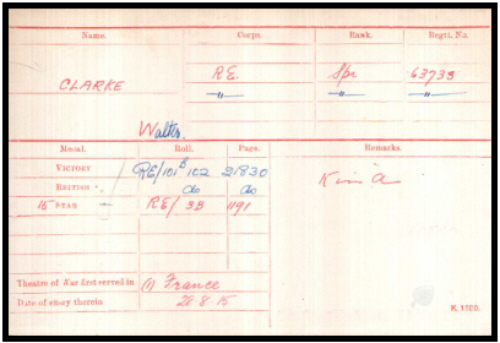 Name. Corps. Rank. Regtl. No.
CLARKE R.E. Spr 63733
—"— —"— —"—
Walter.
Medal. Roll. Page. Remarks.
VICTORY RE/101 B 102 21830
BRITISH do do
15 STAR RE/ 3B 1191
K in a
Theatre of War first served in (1) France
Date of entry therein 28.8.15
K. 1380.